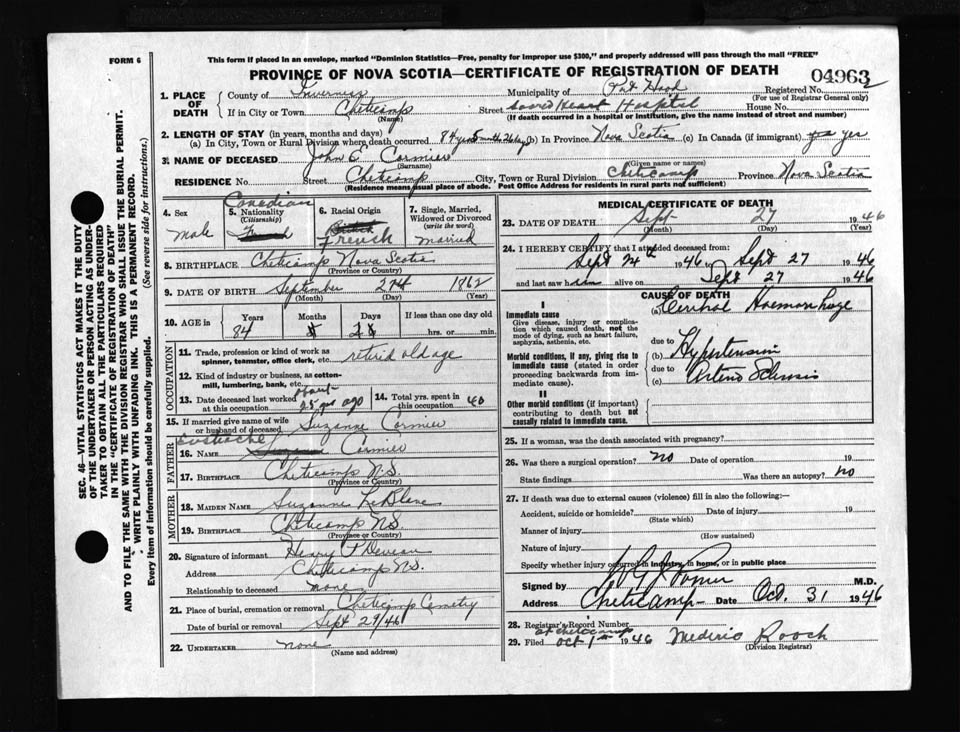 FORM 6
This form if placed in an envelope, marked "Dominion Statistics—Free, penalty for improper use $300," and properly addressed will pass through the mail "FREE"
PROVINCE OF NOVA SCOTIA—CERTIFICATE OF REGISTRATION OF DEATH
04963
1. PLACE OF DEATH
County of Inverness Municipality of Port Hood Registered No.
(For use of Registrar General only)
If in City or Town Cheticamp Street Sacred Heart Hospital House No.
(Name) (If death occurred in a hospital or institution, give the name instead of street and number)
2. LENGTH OF STAY (in years, months and days)
(a) In City, Town or Rural Division where death occurred 84 yrs (b) In Province Nova Scotia (c) In Canada (if immigrant) yrs yes
3. NAME OF DECEASED John E Cormier
(Surname) (Given name or names)
RESIDENCE No. Street Cheticamp City, Town or Rural Division Cheticamp Province Nova Scotia
(Residence means usual place of abode. Post Office Address for residents in rural parts not sufficient)
4. Sex Male
5. Nationality (Citizenship) Canadian
6. Racial Origin French
7. Single, Married, Widowed or Divorced (write the word) married
8. BIRTHPLACE Cheticamp Nova Scotia
(Province or Country)
9. DATE OF BIRTH September 1862
(Month) (Day) (Year)
10. AGE in Years Months Days If less than one day old
84 hrs. or min.
OCCUPATION
11. Trade, profession or kind of work as spinner, teamster, office clerk, etc. retired old age
12. Kind of industry or business, as cotton-mill, lumbering, bank, etc.
13. Date deceased last worked at this occupation about 25 yrs ago
14. Total yrs. spent in this occupation 40
15. If married give name of wife or husband of deceased Suzanne Cormier
FATHER
16. NAME Eustache Cormier
17. BIRTHPLACE Cheticamp N.S.
(Province or Country)
MOTHER
18. MAIDEN NAME Suzanne LeBlanc
19. BIRTHPLACE Cheticamp NS
(Province or Country)
20. Signature of informant Henry P Deveau
Address Cheticamp N.S.
Relationship to deceased none
21. Place of burial, cremation or removal Cheticamp Cemetry
Date of burial or removal Sept 29/46
22. UNDERTAKER none
(Name and address)
MEDICAL CERTIFICATE OF DEATH
23. DATE OF DEATH Sept 27 1946
(Month) (Day) (Year)
24. I HEREBY CERTIFY that I attended deceased from:
Sept 24th 1946 to Sept 27 1946
and last saw him alive on Sept 27 1946
CAUSE OF DEATH
I
Immediate cause
Give disease, injury or complication which caused death, not the mode of dying, such as heart failure, asphyxia, asthenia, etc.
(a) Cerebral Haemorrhage
due to
Morbid conditions, if any, giving rise to immediate cause (stated in order proceeding backwards from immediate cause).
(b) Hypertension
due to
(c) Arterio Sclerosis
II
Other morbid conditions (if important) contributing to death but not causally related to immediate cause.
25. If a woman, was the death associated with pregnancy?
26. Was there a surgical operation? no Date of operation 19
State findings Was there an autopsy? no
27. If death was due to external causes (violence) fill in also the following:—
Accident, suicide or homicide? Date of injury 19
(State which)
Manner of injury
(How sustained)
Nature of injury
Specify whether injury occurred in industry, in home, or in public place
Signed by M.D.
Address Cheticamp Date Oct. 31 1946
28. Registrar's Record Number
at Cheticamp
29. Filed Oct 1st 1946
(Division Registrar)
SEC. 46—VITAL STATISTICS ACT MAKES IT THE DUTY
OF THE UNDERTAKER OR PERSON ACTING AS UNDER-
TAKER TO OBTAIN ALL THE PARTICULARS REQUIRED
IN THE "CERTIFICATE OF REGISTRATION OF DEATH"
AND TO FILE THE SAME WITH THE DIVISION REGISTRAR WHO SHALL ISSUE THE BURIAL PERMIT.
WRITE PLAINLY WITH UNFADING INK. THIS IS A PERMANENT RECORD.
Every item of information should be carefully supplied. (See reverse side for instructions.)